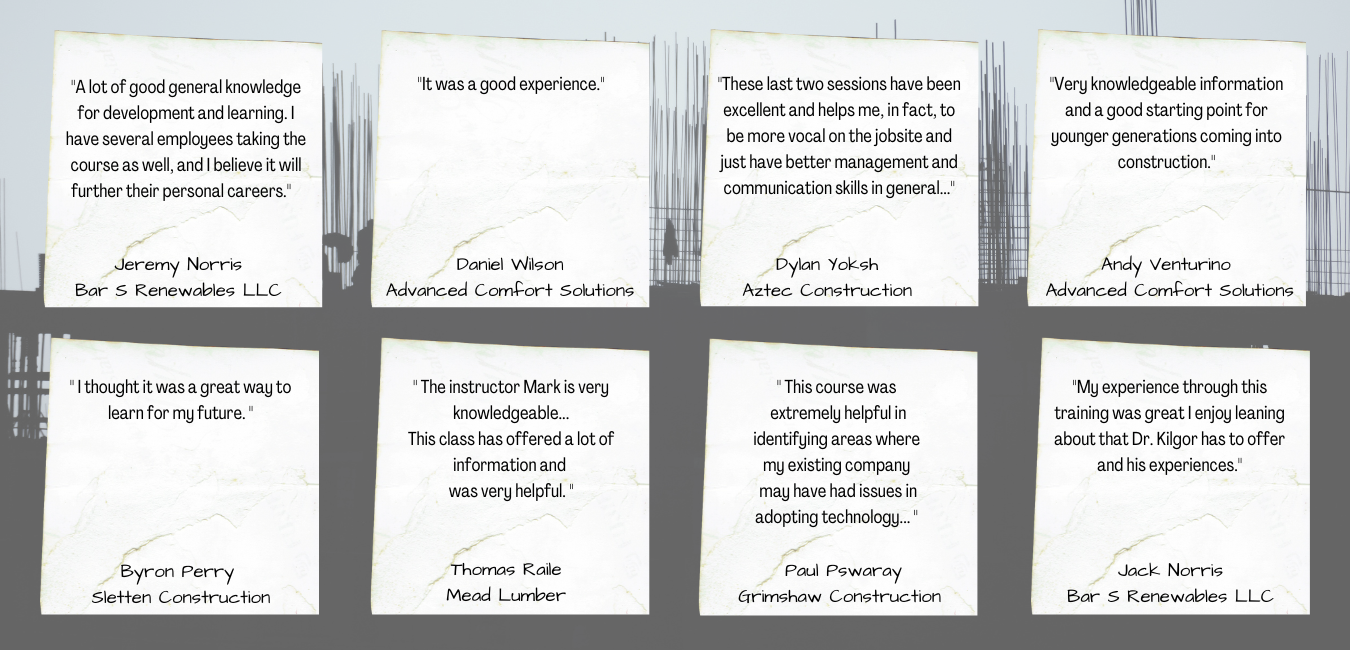 "A lot of good general knowledge
for development and learning. I
have several employees taking the
course as well, and I believe it will
further their personal careers."
Jeremy Norris
Bar S Renewables LLC
"It was a good experience."
Daniel Wilson
Advanced Comfort Solutions
"These last two sessions have been
excellent and helps me, in fact, to
be more vocal on the jobsite and
just have better management and
communication skills in general..."
Dylan Yoksh
Aztec Construction
"Very knowledgeable information
and a good starting point for
younger generations coming into
construction."
Andy Venturino
Advanced Comfort Solutions
" I thought it was a great way to
learn for my future. "
Byron Perry
Sletten Construction
" The instructor Mark is very
knowledgeable...
This class has offered a lot of
information and
was very helpful. "
Thomas Raile
Mead Lumber
" This course was
extremely helpful in
identifying areas where
my existing company
may have had issues in
adopting technology... "
Paul Pswaray
Grimshaw Construction
"My experience through this
training was great I enjoy leaning
about that Dr. Kilgor has to offer
and his experiences."
Jack Norris
Bar S Renewables LLC